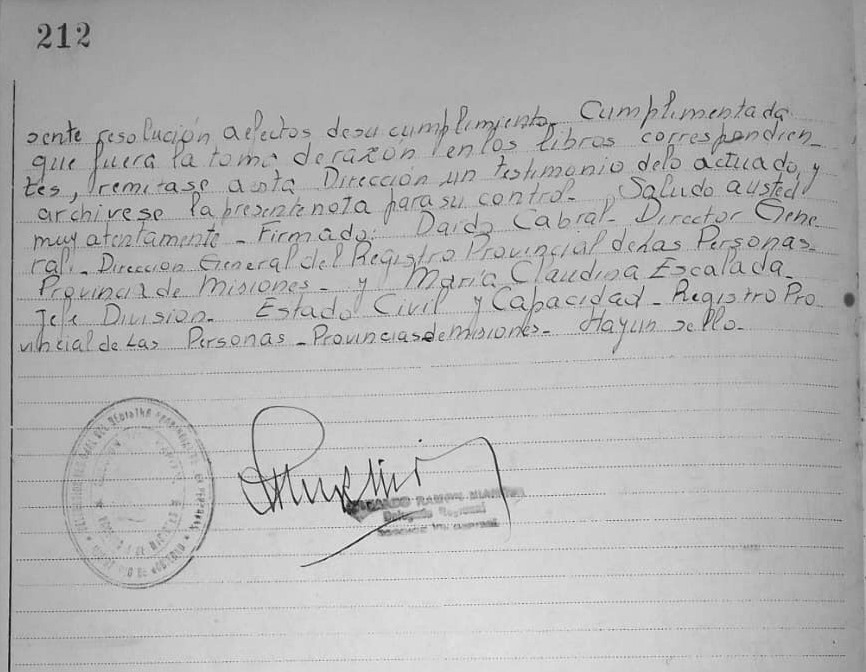 212
sente resolución aefectos desu cumplimiento. Cumplimentada
que fuera la toma de razón en los libros correspondien_
tes, remitase a esta Dirección un testimonio delo actuado, y
archivese la presente nota para su control_ Saludo austed
muy atentamente_ Firmado: Dardo Cabral_ Director Gene
ral_ Dirección General del Registro Provincial de las Personas_
Provincia de Misiones_ y María Claudina Escalada_
Jefe División_ Estado Civil y Capacidad_ Registro Pro
vincial de las Personas_Provincias de Misiones_ Hay un sello_
RAMON
Delegado Regional